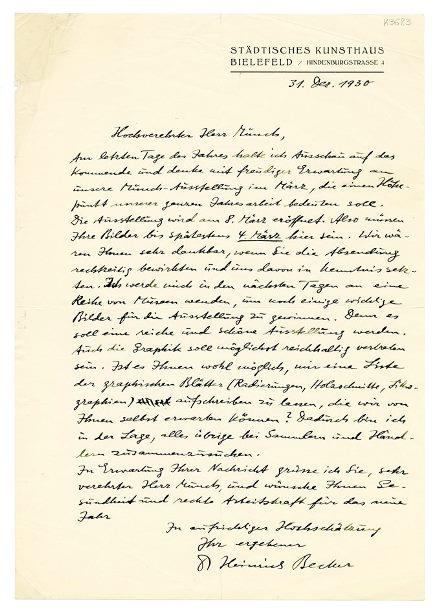 K3683
STÄDTISCHES KUNSTHAUS
BIELEFELD / HINDENBURGSTRASSE 4
31. Dez. 1930
Hochverehrter Herr Munch,
Am letzten Tage des Jahres halte ich Ausschau auf das
Kommende und denke mit freudiger Erwartung an
unsere Munch-Ausstellung im März, die einen Höhe-
punkt unserer ganzen Jahresarbeit bedeuten soll.
Die Ausstellung wird am 8. März eröffnet. Also müssen
Ihre Bilder bis spätestens 4 März hier sein. Wir wä-
ren Ihnen sehr dankbar, wenn Sie die Absendung
rechtzeitig bewirkten und uns davon in Kenntnis setz-
ten. Ich werde mich in den nächsten Tagen an eine
Reihe von Museen wenden, um noch einige wichtige
Bilder für die Ausstellung zu gewinnen. Denn es
soll eine reiche und schöne Ausstellung werden.
Auch die Graphik soll möglichst reichhaltig vertreten
sein. Ist es Ihnen wohl möglich, mir eine Liste
der graphischen Blätter (Radierungen, Holzschnitte, Litho-
graphien) aufschreiben zu lassen, die wir von
Ihnen selbst erwarten können? Dadurch bin ich
in der Lage, alles übrige bei Sammlern und Händ-
lern zusammenzusuchen.
In Erwartung Ihrer Nachricht grüsse ich Sie, sehr
verehrter Herr Munch, und wünsche Ihnen Ge-
sundheit und rechte Arbeitskraft für das neue
Jahr
In aufrichtiger Hochschätzung
Ihr ergebener
Dr Heinrich Becker